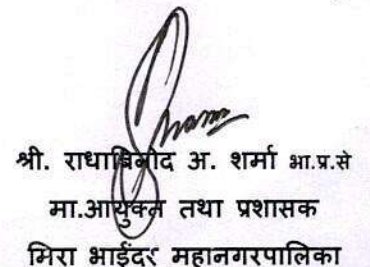 श्री. राधाबिनोद अ. शर्मा भा.प्र.से
मा.आयुक्त तथा प्रशासक
मिरा भाईंदर महानगरपालिका